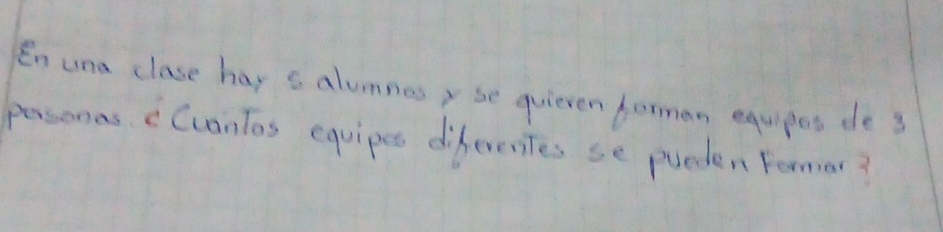 En una clase hay 5 alumnos y se quieren forman equipos de 3
personas. ¿Cuantos equipos diferentes se pueden Formar?